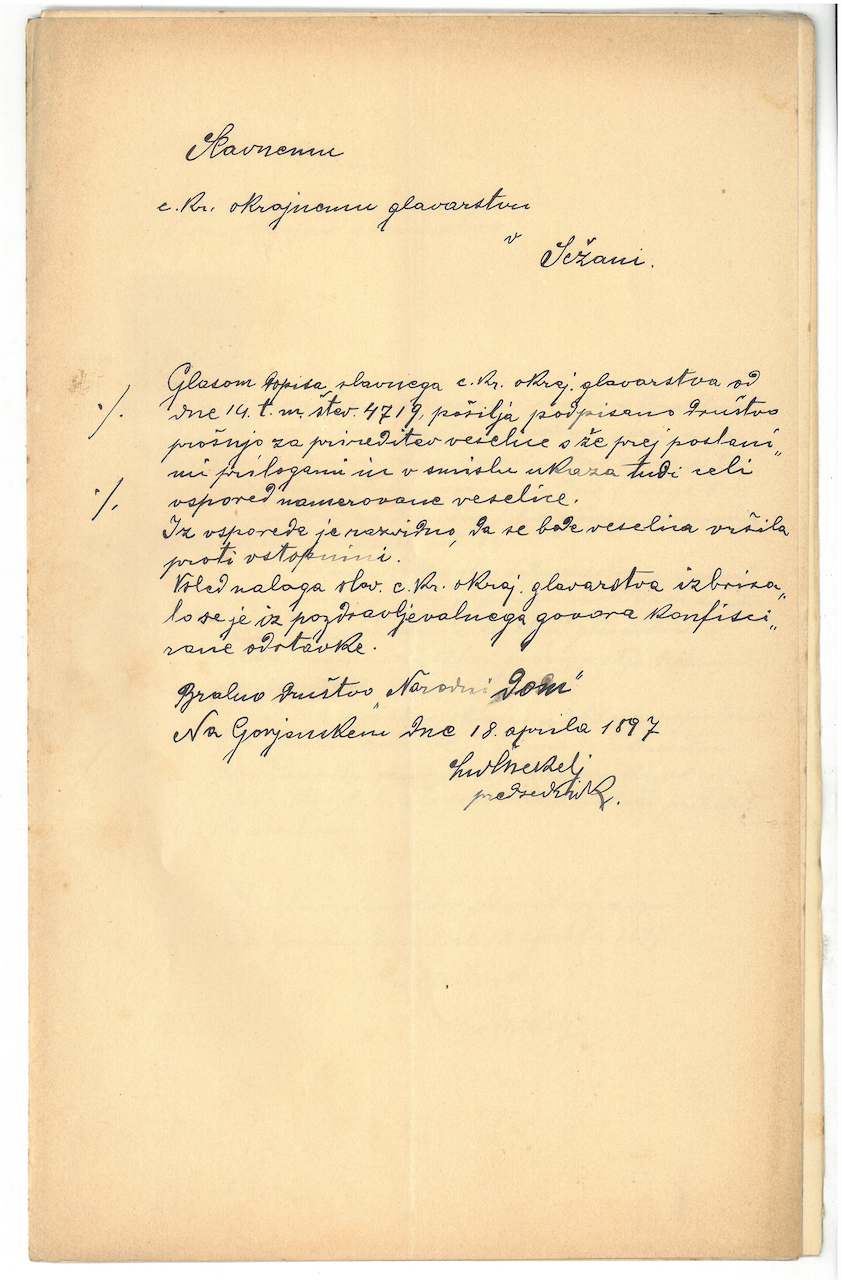 Slavnemu
c. kr. okrajnemu glavarstvu
v
Sežani.
Glasom dopisa slavnega c. kr. okraj. glavarstva od
./. dne 14. t. m. štev. 4719, pošilja podpisano društvo
prošnjo za prireditev veselice s že prej poslani„
mi prilogami in v smislu ukaza tudi celi
./. vspored namerovane veselice.
Iz vsporeda je razvidno, da se bode veselica vršila
proti vstopnini.
Vsled nalaga slav. c. kr. okraj. glavarstva izbrisa„
lo se je iz pozdravljevalnega govora konfisci„
rane odstavke.
Bralno društvo „Narodni Dom"
Na Gorjanskem dne 18. aprila 1897
predsednik.